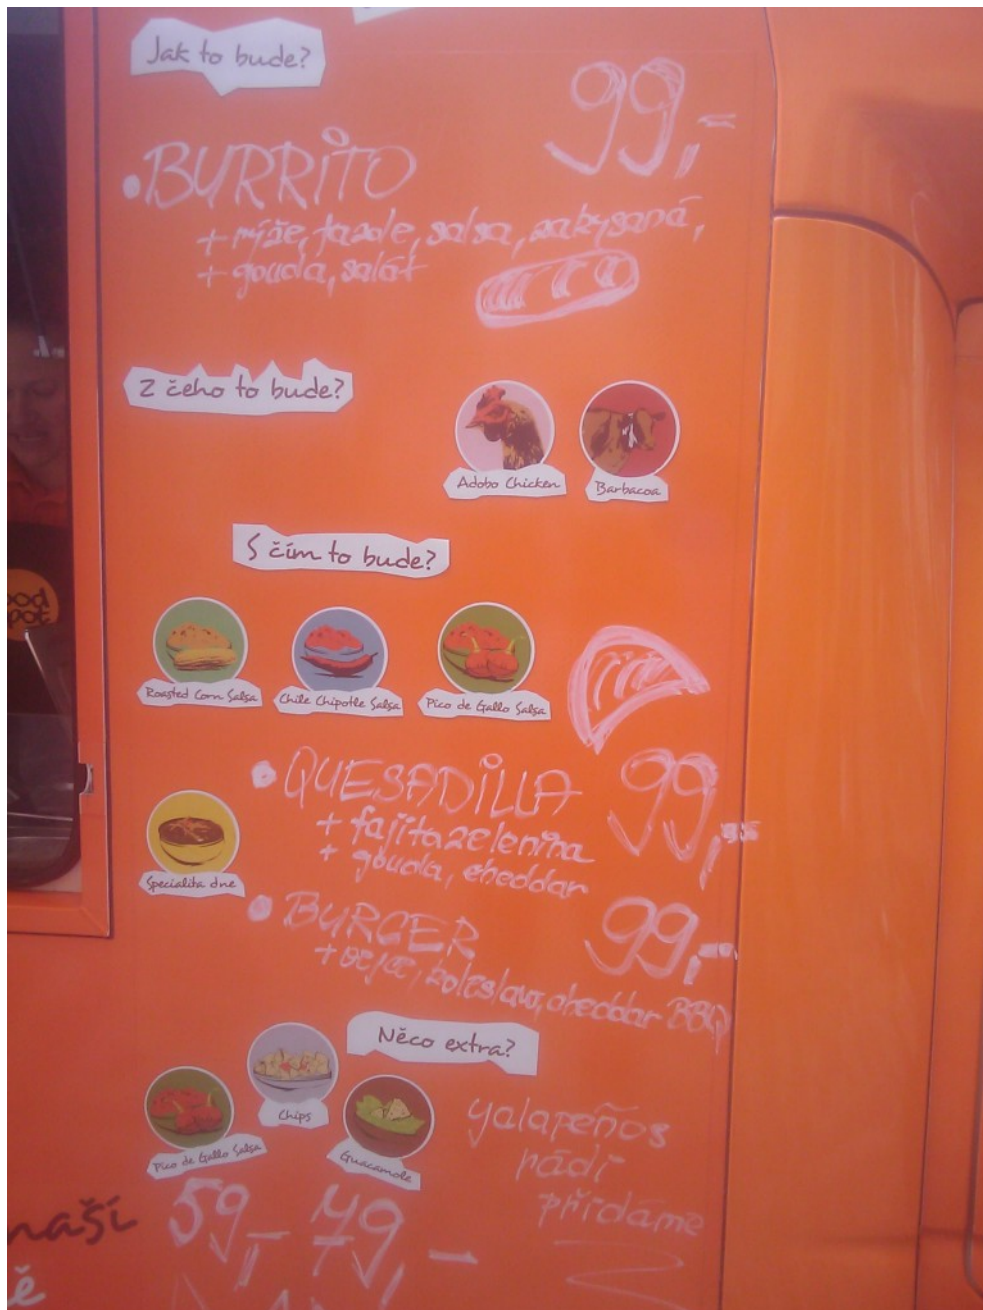 Jak to bude?
99,-
BURRITO
+ rýže, fazole, salsa, zakysaná,
+ gouda, salát
Z čeho to bude?
Adobo Chicken
Barbacoa
S čím to bude?
Roasted Corn Salsa
Chile Chipotle Salsa
Pico de Gallo Salsa
QUESADILLA 99,-
+ fajita zelenina
+ gouda, cheddar
Specialita dne
BURGER 99,-
+ vejce, koleslaw, cheddar BBQ
Něco extra?
Chips
Pico de Gallo Salsa
Guacamole
yalapeños
rádi
přidáme
59,-
naší
ě